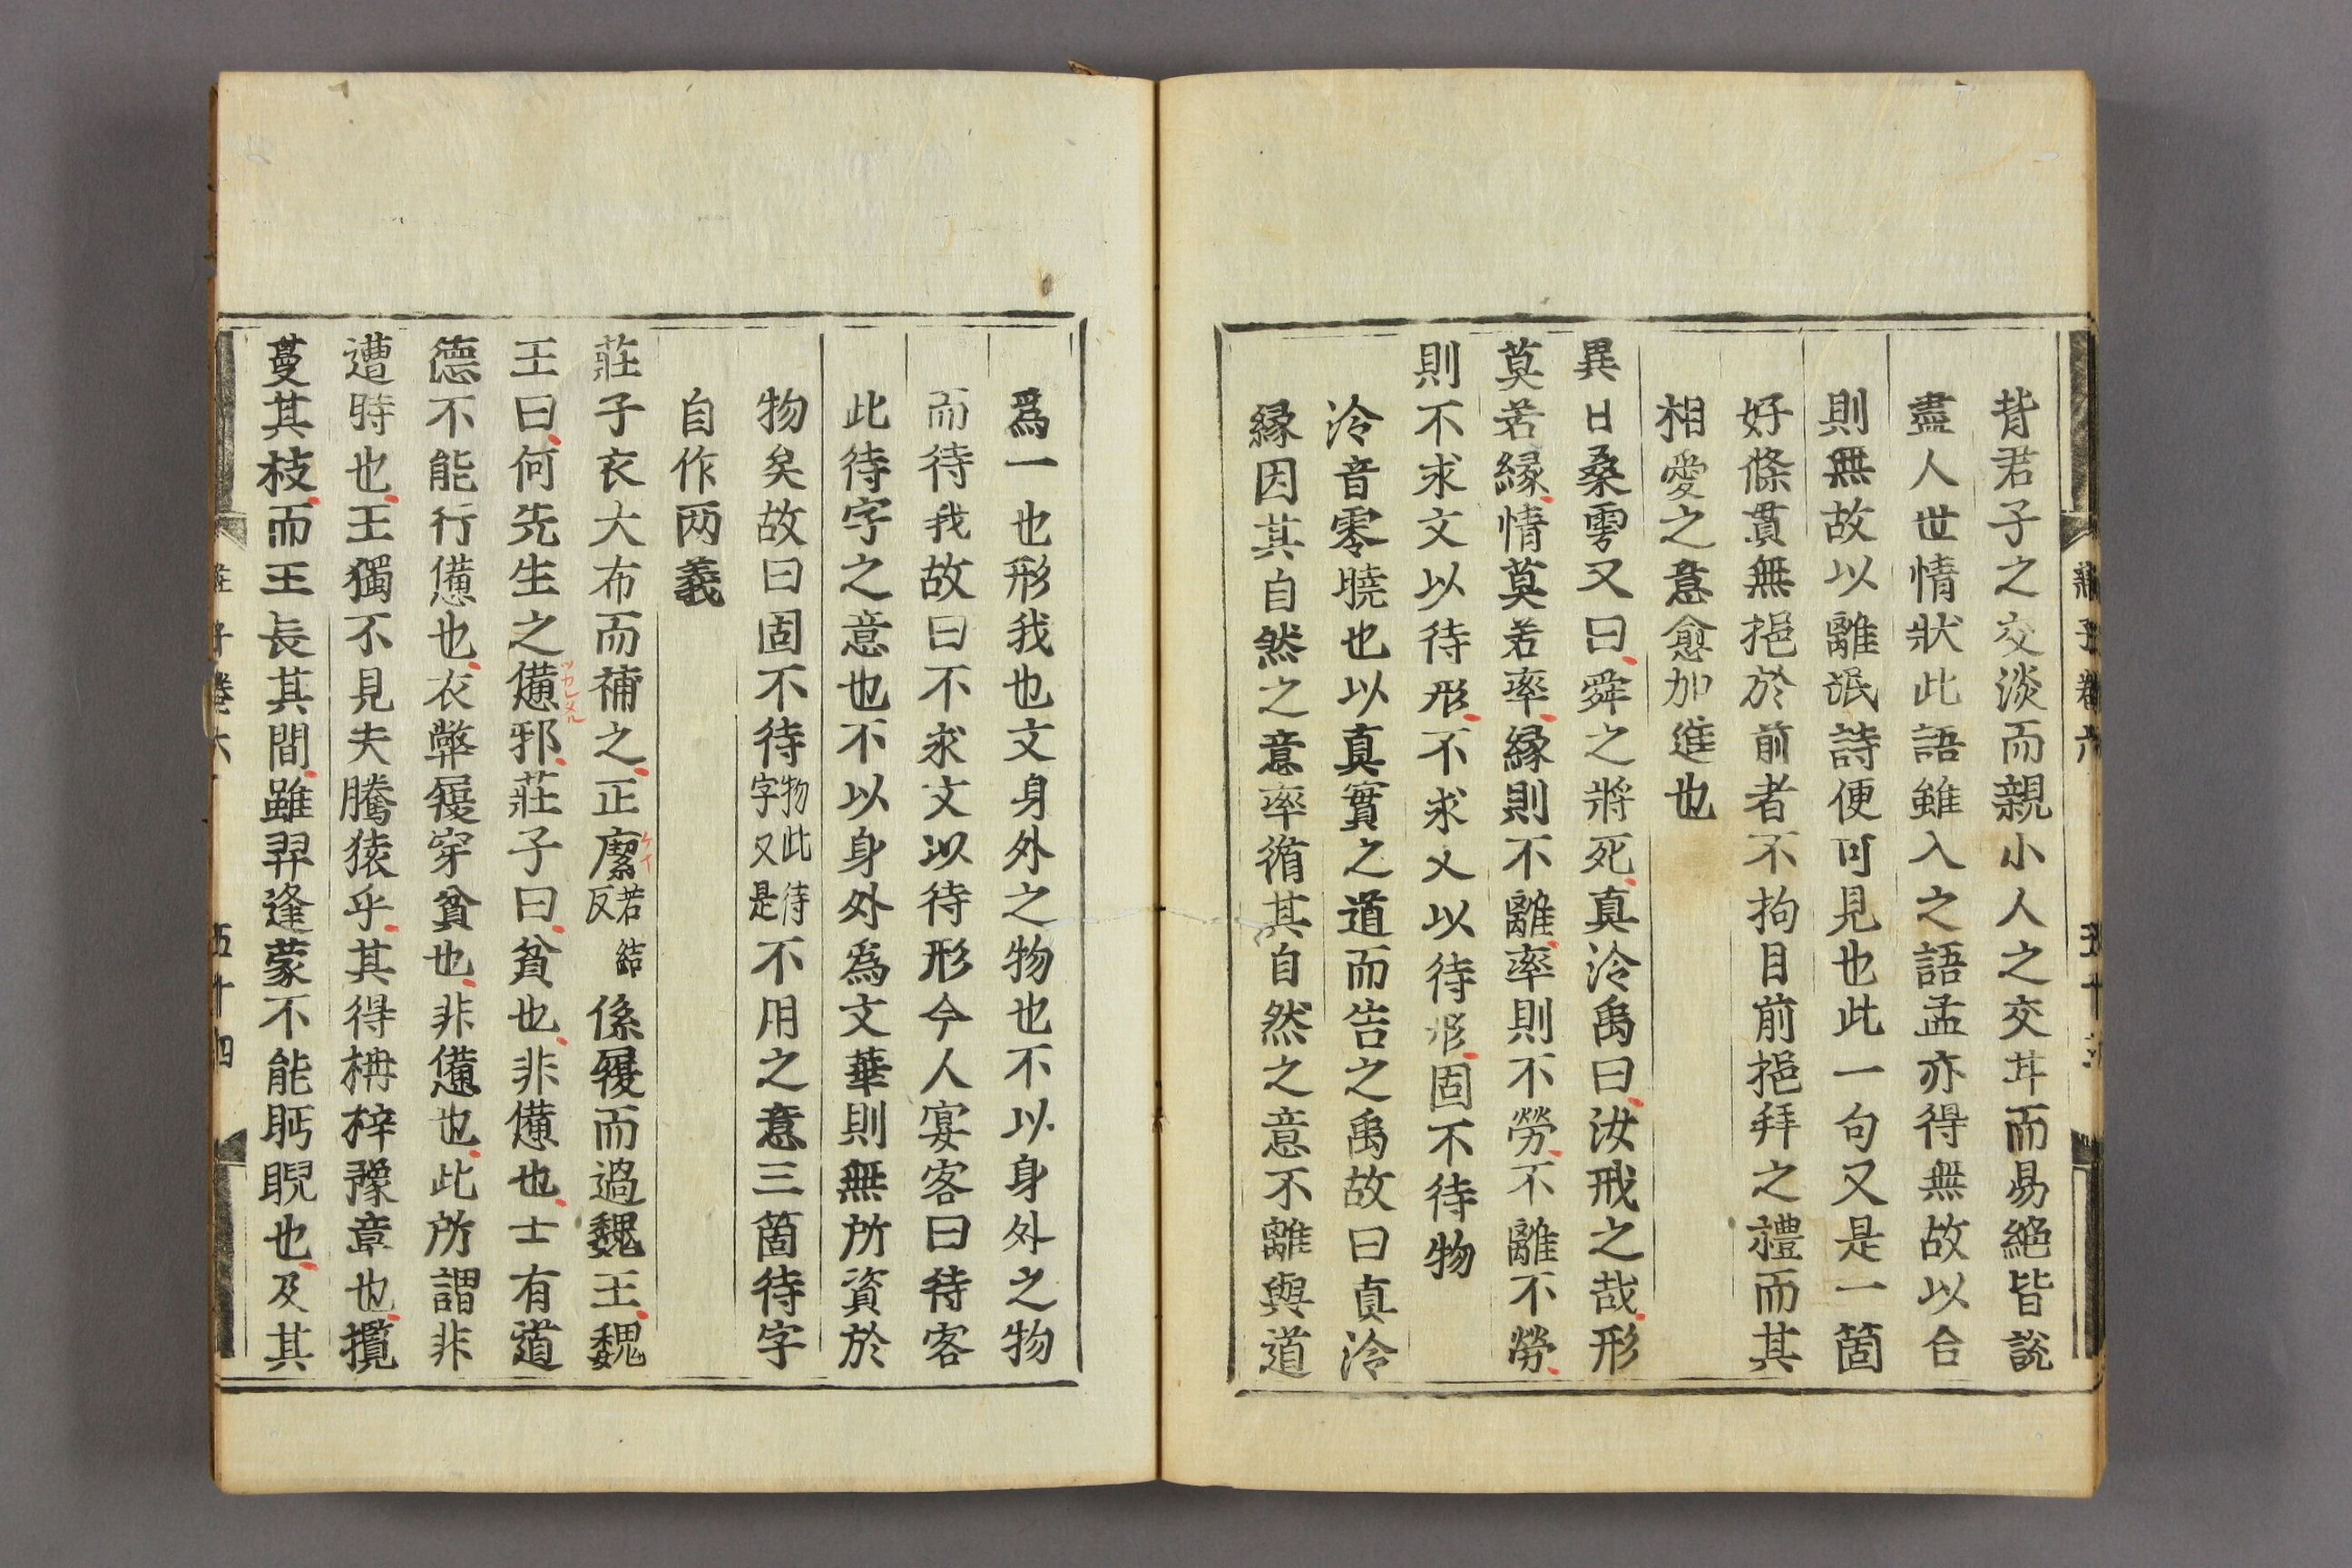 莊子卷六 五十三
背君子之交淡而親小人之交甘而易絶皆說
盡人世情狀此語雖入之語孟亦得無故以合
則無故以離氓詩便可見也此一句又是一箇
好條貫無挹於前者不拘目前挹拜之禮而其
相愛之意愈加進也
異日桑雽又曰舜之將死真泠禹曰汝戒之哉形
莫若緣情莫若率緣則不離率則不勞不離不勞
則不求文以待形不求文以待形固不待物
泠音零曉也以真實之道而告之禹故曰真泠
緣因其自然之意率循其自然之意不離與道
爲一也形我也文身外之物也不以身外之物
而待我故曰不求文以待形今人宴客曰待客
此待字之意也不以身外爲文華則無所資於
物矣故曰固不待物此待字又是不用之意三箇待字
自作两義
莊子衣大布而補之正緳苦結反係履而過魏王魏
王曰何先生之憊邪莊子曰貧也非憊也士有道
ツカレタル
ケイ
德不能行憊也衣弊履穿貧也非憊也此所謂非
遭時也王獨不見夫騰猿乎其得枏梓豫章也攬
蔓其枝而王長其間雖羿逢蒙不能眄睨也及其
莊子卷六 五十四